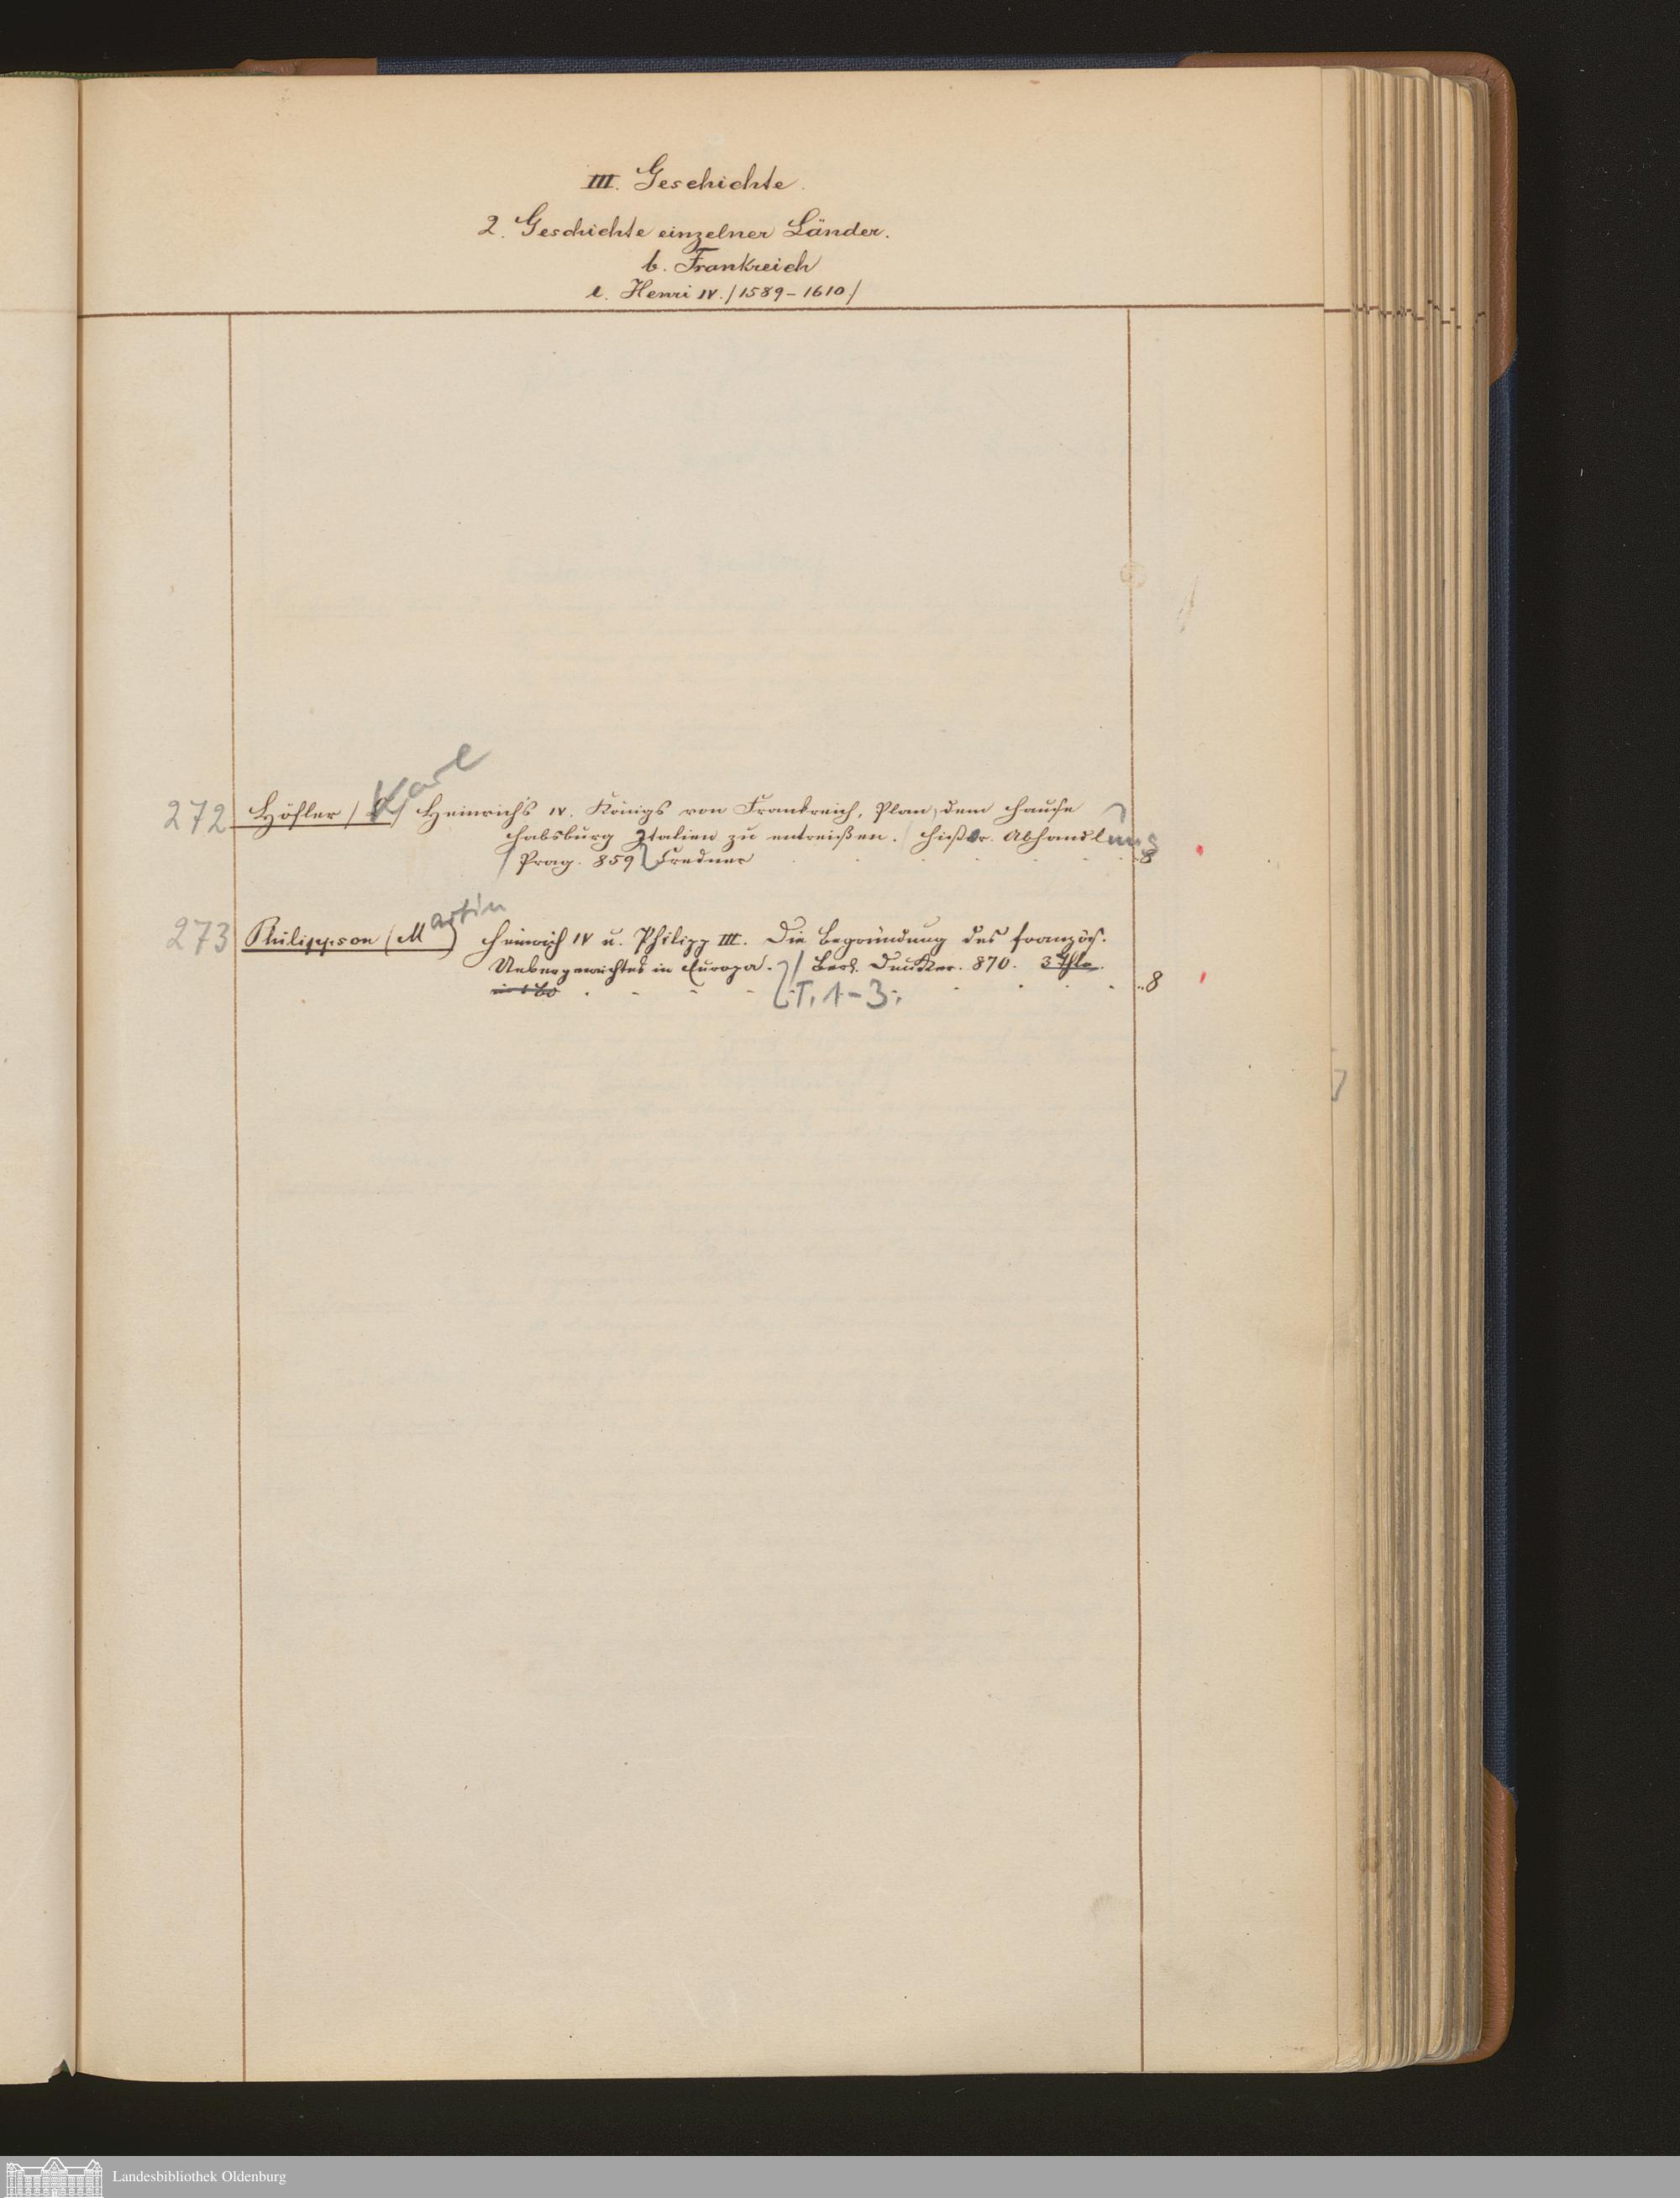 III. Geschichte.
2. Geschichte einzelner Länder.
b. Frankreich
e. Henri IV. /1589-1610/
272 Höfler / Karl / Heinrich's IV. Königs von Frankreich, Plan, dem Hause
Habsburg Italien zu entreißen. / Histor. Abhandlung
/ Prag. 859 Credner 8
273 Philippson (Martin) Heinrich IV u. Philipp III. Die Begründung des französ.
Uebergewichtes in Europa. / Berl. Duncker. 870. 3 Thle.
[T. 1-3. 8
Landesbibliothek Oldenburg